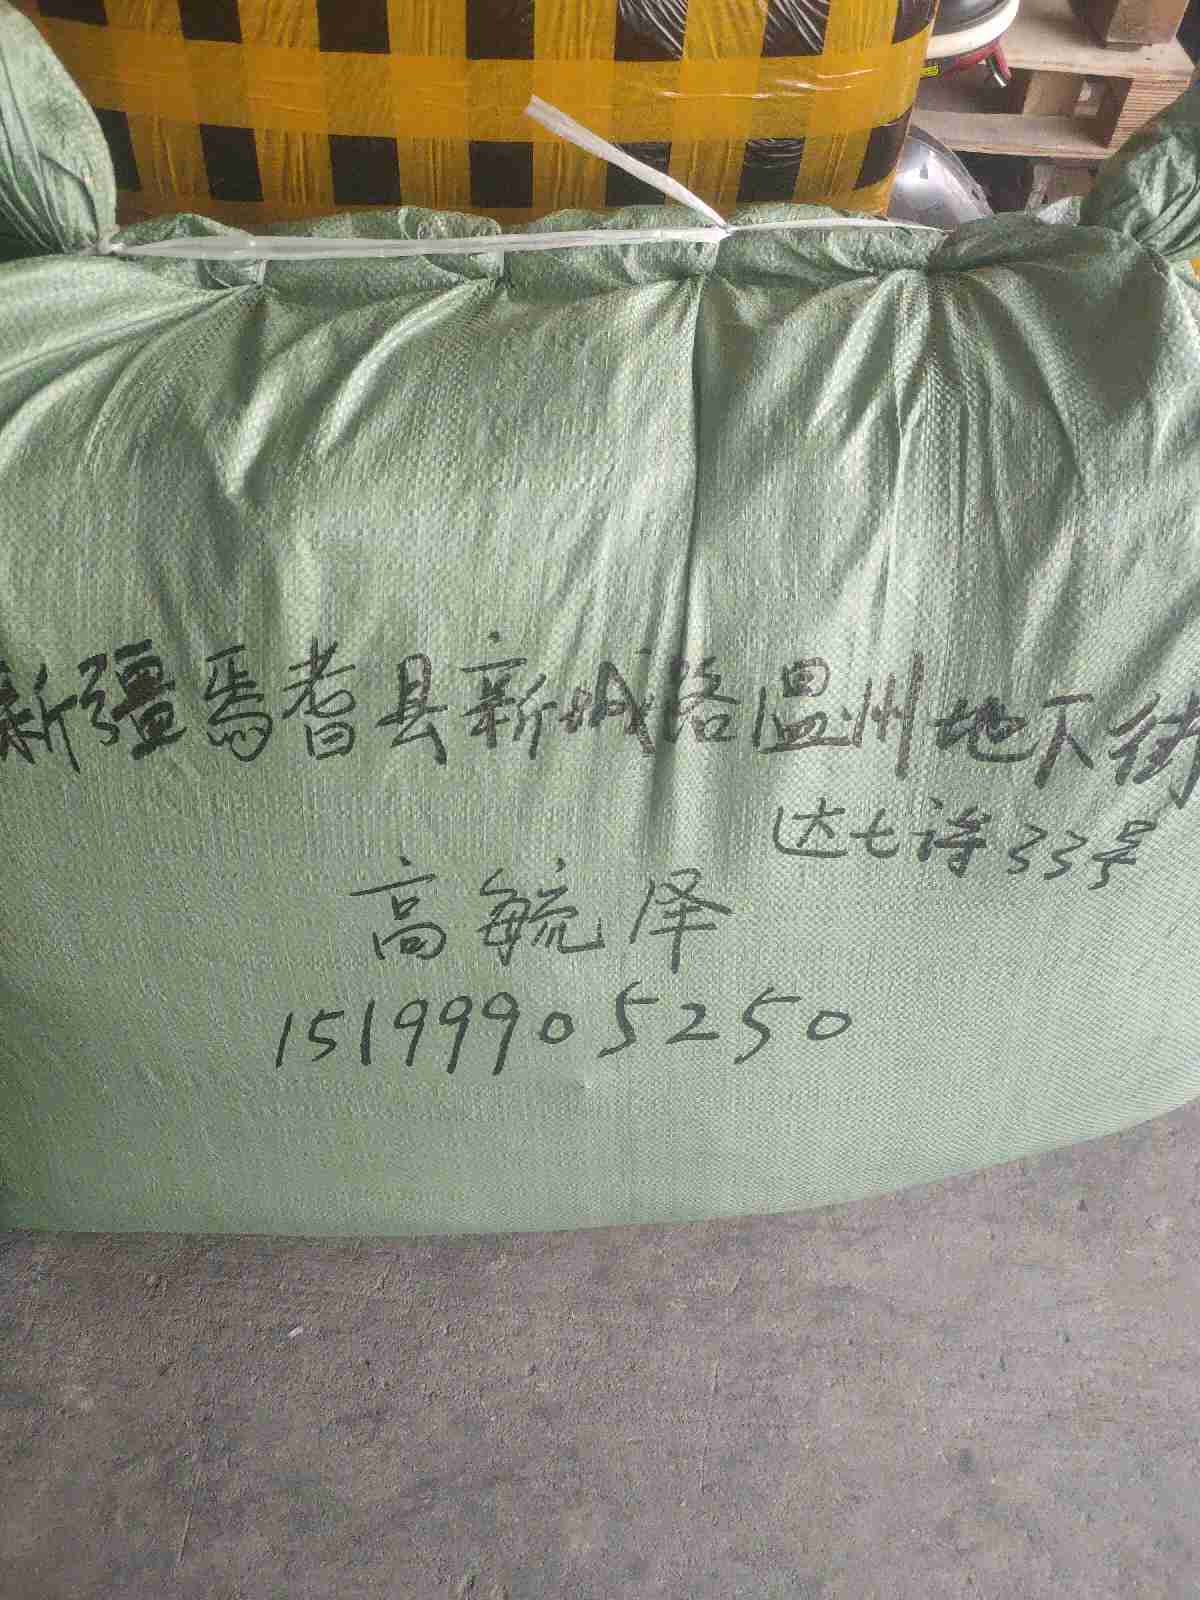 新疆焉耆县新城路温州地下街
达七诗33号
高毓泽
15199905250